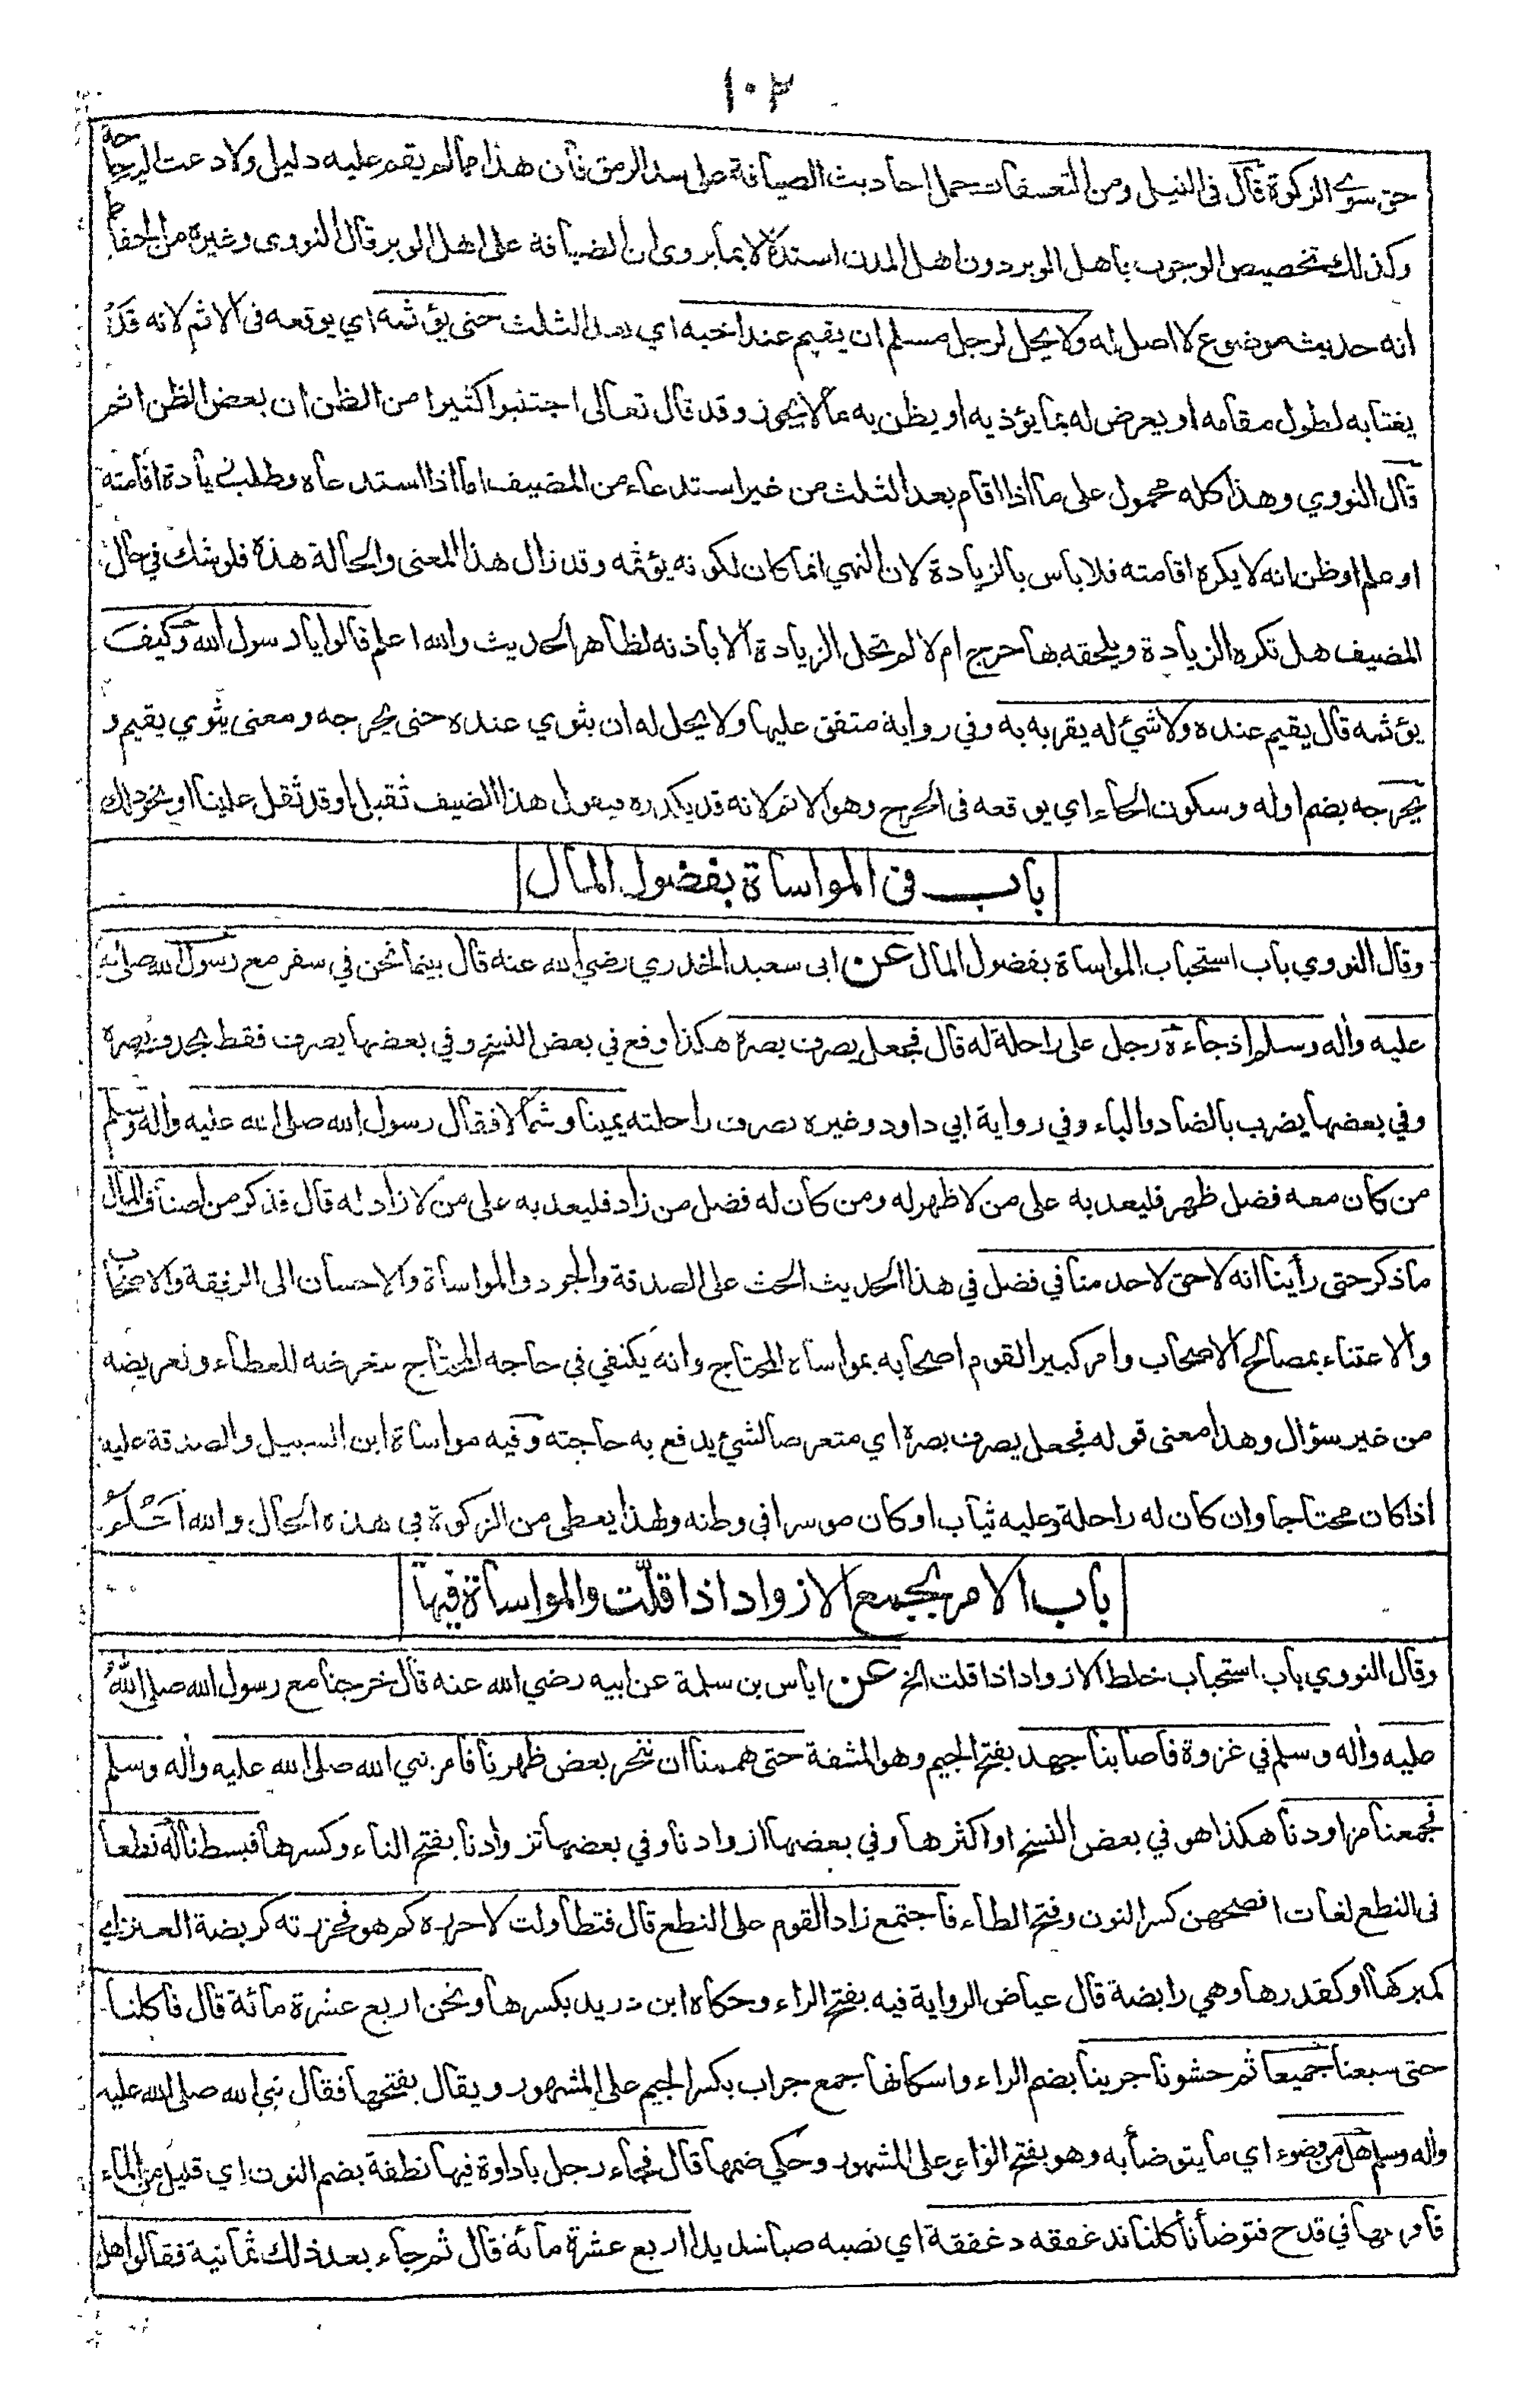 ١٠٢
حق سوى الزكوة قال فى النيل ومن التعسفات حمل احاديث الضيافة على سد الرمق فأن هذا مما لم يقم عليه دليل ولا دعت اليه حاجة
وكذلك تخصيص الوجوب بأهل الوبر دون اهل المدن استدلالا بما يروى ان الضيافة على اهل الوبر قال النووى وغيره من الحفاظ
انه حديث موضوع لا اصل له ولا يحل لرجل مسلم ان يقيم عند اخيه اي بعد الثلث حتى يؤثمه اي يوقعه فى الاثم لانه قد
يغتابه لطول مقامه او يعرض له بما يؤذيه او يظن به ما لا يجوز وقد قال تعالى اجتنبوا كثيرا من الظن ان بعض الظن اثم
قال النووي وهذا كله محمول على ما اذا اقام بعد الثلث من غير استدعاء من المضيف اما اذا استدعاه وطلب زيادة اقامته
او علم او ظن انه لا يكره اقامته فلا باس بالزيادة لان النهي انما كان لكونه يؤثمه وقد زال هذا المعنى والحالة هذه فلو شك في حال
المضيف هل تكره الزيادة ويلحقه بها حرج ام لا لم تحل الزيادة الا باذنه لظاهر الحديث والله اعلم قالوا يا رسول الله وكيف
يؤثمه قال يقيم عنده ولا شئ له يقريه به وفي رواية متفق عليها ولا يحل له ان يثوي عنده حتى يحرجه ومعنى يثوي يقيم و
يحرجه بضم اوله وسكون الحاء اي يوقعه فى الحرج وهو الاثم لانه قد يكدره فيقول هذا الضيف ثقيل او قد ثقل علينا او نحو ذلك
باب فى المواساة بفضول المال
وقال النووي باب استحباب المواساة بفضول المال عن ابى سعيد الخدري رضي الله عنه قال بينما نحن في سفر مع رسول الله صلى الله
عليه وأله وسلم اذ جاءه رجل على راحلة له قال فجعل يصرف بصره هكذا وقع في بعض النسخ وفي بعضها يصرف فقط بحذف بصره
وفي بعضها يضرب بالضاد والباء وفي رواية ابي داود وغيره يصرف راحلته يمينا وشمالا فقال رسول الله صلى الله عليه وأله وسلم
من كان معه فضل ظهر فليعد به على من لا ظهر له ومن كان له فضل من زاد فليعد به على من لا زاد له قال فذكر من اصناف المال
ما ذكر حتى رأينا انه لا حق لاحد منا في فضل في هذا الحديث الحث على الصدقة والجود والمواساة والاحسان الى الرفقة والاصحاب
والاعتناء بمصالح الاصحاب وامر كبير القوم اصحابه بمواساة المحتاج وانه يكتفي في حاجه المحتاج بتعرضه للعطاء وتعريضه
من غير سؤال وهذا معنى قوله فجعل يصرف بصره اي متعرضا لشئ يدفع به حاجته وفيه مواساة ابن السبيل والصدقة عليه
اذا كان محتاجا وان كان له راحلة وعليه ثياب او كان موسرا في وطنه ولهذا يعطى من الزكوة في هذه الحال والله اعلم
باب الامر بجمع الازواد اذا قلت والمواساة فيها
وقال النووي باب استحباب خلط الازواد اذا قلت الخ عن اياس بن سلمة عن ابيه رضي الله عنه قال خرجنا مع رسول الله صلى الله
عليه وأله وسلم في غزوة فاصابنا جهد بفتح الجيم وهو المشقة حتى هممنا ان ننحر بعض ظهرنا فامر نبي الله صلى الله عليه وأله وسلم
فجمعنا مزاودنا هكذا هو في بعض النسخ او اكثرها وفي بعضها ازوادنا وفي بعضها تزوادنا بفتح التاء وكسرها فبسطنا له نطعا
فى النطع لغات افصحهن كسر النون وفتح الطاء فاجتمع زاد القوم على النطع قال فتطاولت لاحزره كم هو فحزرته كربضة العنز اي
كمبركها او كقدرها وهي رابضة قال عياض الرواية فيه بفتح الراء وحكاه ابن دريد بكسرها ونحن اربع عشرة مائة قال فاكلنا
حتى شبعنا جميعا ثم حشونا جربنا بضم الراء واسكانها جمع جراب بكسر الجيم على المشهور ويقال بفتحها فقال نبي الله صلى الله عليه
وأله وسلم هل من وضوء اي ما يتوضأ به وهو بفتح الواو على المشهور وحكي ضمها قال فجاء رجل باداوة فيها نطفة بضم النون اي قليل من الماء
فافرغها في قدح فتوضأنا كلنا ندغفقه دغفقة اي نصبه صبا شديدا اربع عشرة مائة قال ثم جاء بعد ذلك ثمانية فقالوا هل